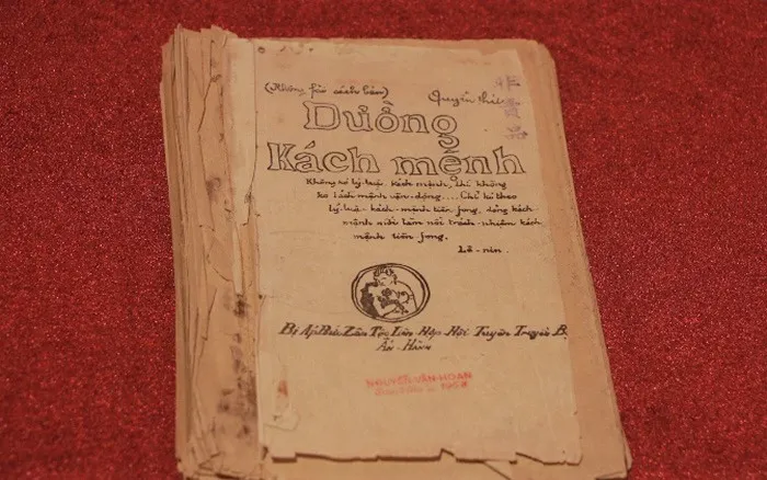 (Không fải sách bán) Quyển thứ
Đường
Kách mệnh
Không có lý luận kách mệnh, thì không
có kách mệnh vận-động.... Chỉ có theo
lý luận kách-mệnh tiền fong, đảng kách-
mệnh mới làm nổi trách-nhiệm kách
mệnh tiền fong.
Lê-nin.
Bị Áp Bức Zân Tộc Liên-Hợp Hội Tuyên Truyền Bộ
Ấn-Hành
NGUYỄN-VĂN-HOAN